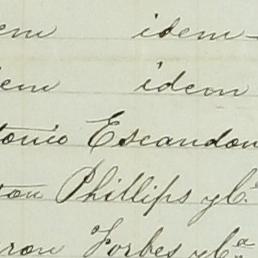 em idem
em idem
tonio Escandon
ton Phillips y Cª
rron Forbes y Cª